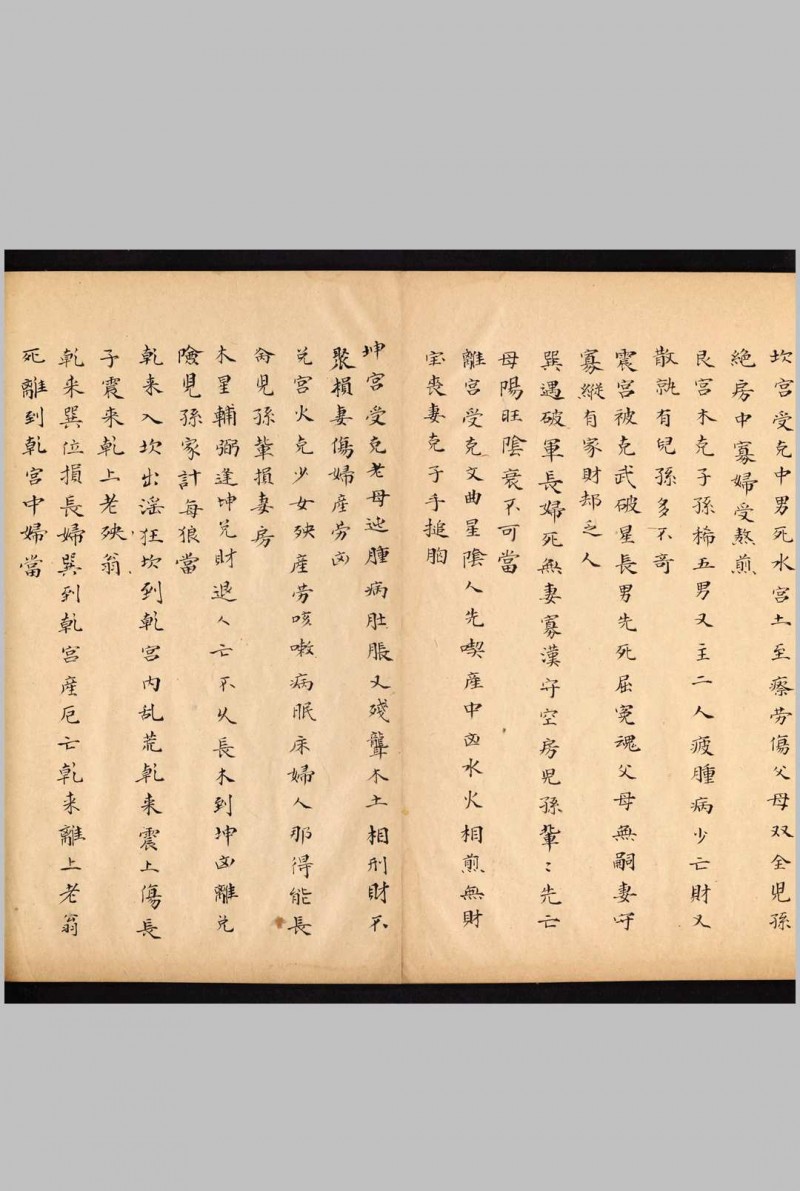 坎宮受克中男死水宮土至瘵劳傷父母双全児孫
絶房中寡婦受熬煎
艮宮木克子孫稀五男又主二人疲腫病少亡財又
散就有兒孫多不奇
震宮被克武破星長男先死屈冤魂父母無嗣妻守
寡縱有家財却乏人
巽遇破軍長婦死無妻寡漢守空房児孫輩〻先亡
母陽旺陰衰不可當
離宮受克文曲星陰人先喫産中凶水火相煎無財
宝喪妻克子手搥胸
坤宮受克老母迍腫病肚脹又殘聾木土相刑財不
聚損妻傷婦産劳凶
兑宮火克少女殃産劳咳嗽病眠床婦人那得能長
命児孫輩損妻房
木星輔弼逢坤兑財退人亡不久長木到坤凶離兑
險児孫家計每狼當
乹来入坎出淫狂坎到乹宮内乱荒乹来震上傷長
子震来乹上老殃翁
乹来巽位損長婦巽到乹宮産厄亡乹来離上老翁
死離到乹宮中婦當